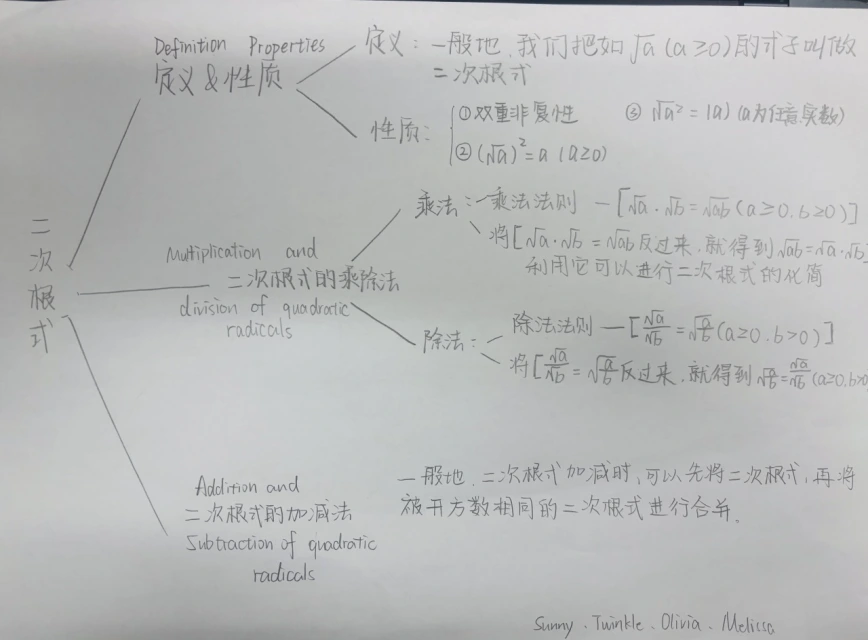 二次根式
Definition Properties
定义&性质
定义：一般地，我们把如√a（a≥0）的式子叫做
二次根式
性质：
①双重非负性 ③ √a² = |a| (a为任意实数)
②（√a）² = a （a≥0）
Multiplication and
二次根式的乘除法
division of quadratic
radicals
乘法：
乘法法则 —[√a · √b = √ab（a≥0，b≥0）]
将[√a · √b = √ab 反过来，就得到√ab = √a · √b]
利用它可以进行二次根式的化简
除法：
除法法则 —[√a/√b = √a/b（a≥0，b>0）]
将[√a/√b = √a/b 反过来，就得到√a/b = √a/√b（a≥0，b>0
Addition and
二次根式的加减法
Subtraction of quadratic
radicals
一般地，二次根式加减时，可以先将二次根式，再将
被开方数相同的二次根式进行合并.
Sunny . Twinkle . Olivia . Melissa